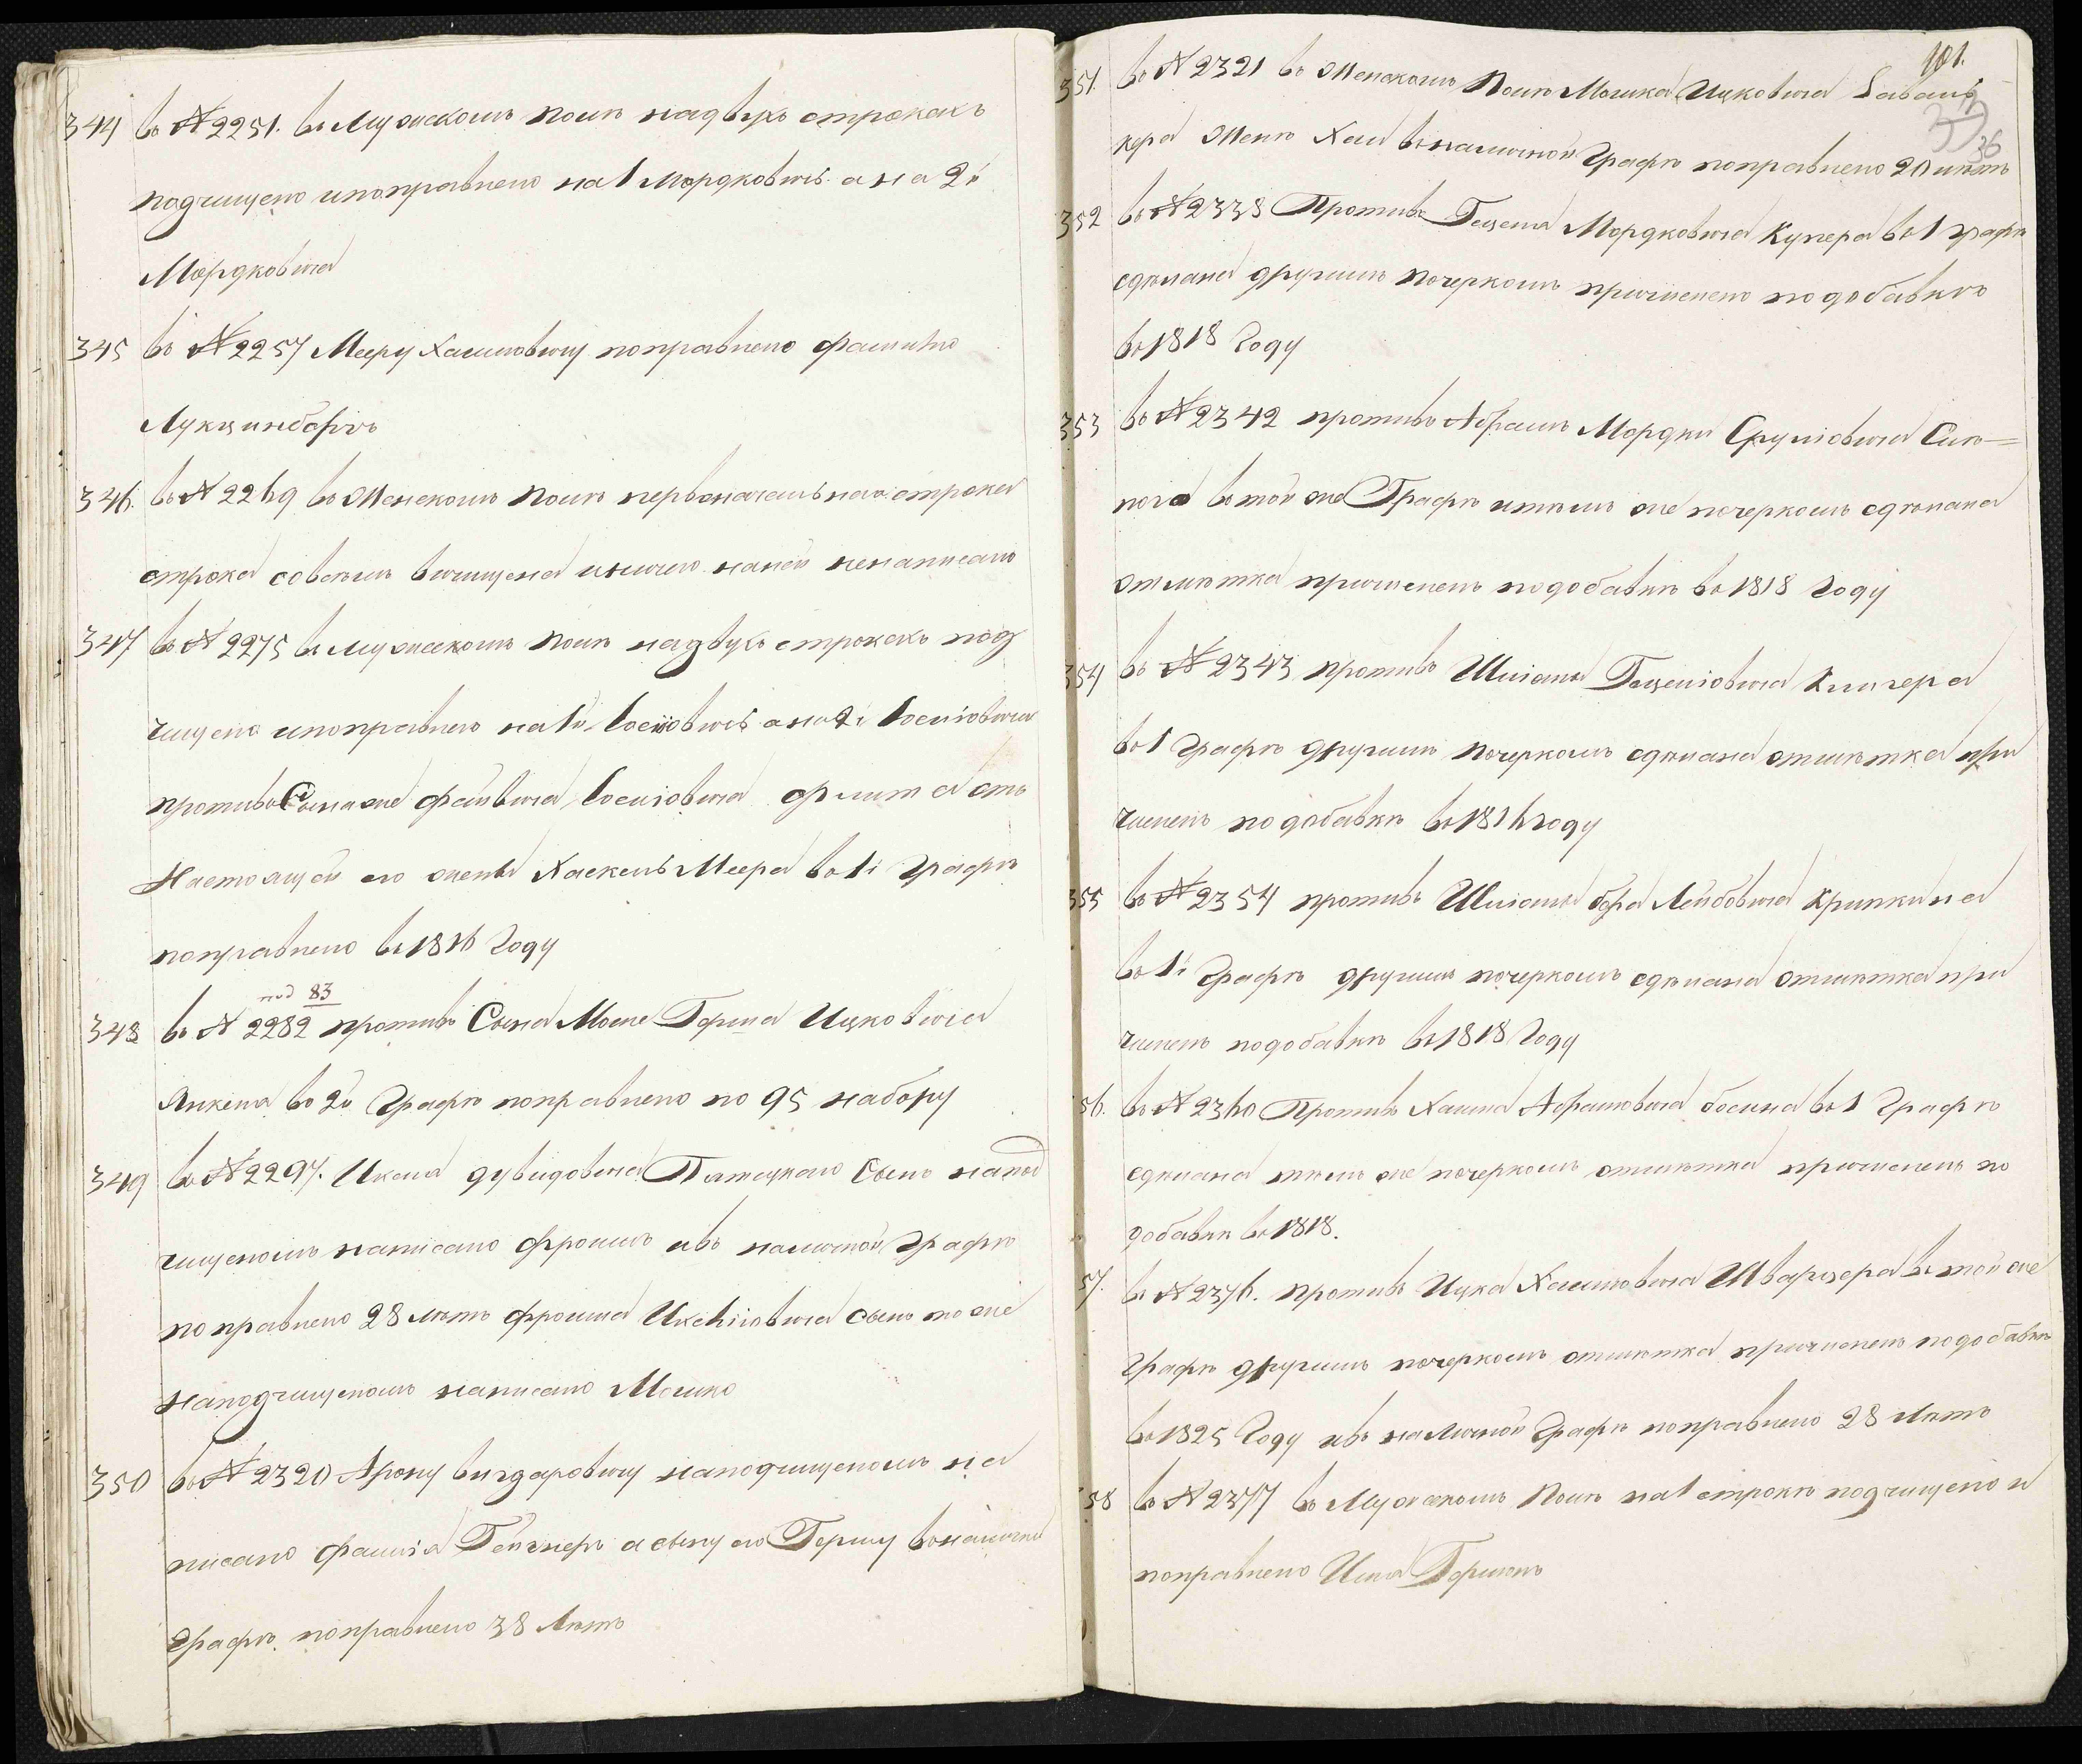 344 въ № 2251. въ Мужскомъ полѣ надвухъ строкахъ
подчищено ипоправлено на 1 Мордковичъ а на 2й
Мордковича
345 въ № 2257 Мееру Хаимовичу поправлено фамилію
346. въ № 2269 въ Женскомъ полѣ первоначальная строка
строка совсемъ вычищена иничего наней ненаписано
347 въ № 2275 въ мужескомъ полѣ надвухъ строкахъ под
чищено ипоправлено на 1й Іосіовичъ а на 2й Іосиіовича
противъ Сына же Файвиша Іосиіовича
Настоящей его жены Хаскель Меера въ 1й графѣ
поправлено въ 1816 Году
под 83
348 въ № 2282 противъ Сына Мовше Герша Ицковича
Янкеля во 2й Графѣ поправлено по 95 набору
349 въ № 2297. Икеля дувидовича Патецкаго Сынъ напод
чищеномъ написано Фроимъ ивъ наличной Графѣ
поправлено 28 лѣтъ Фроима сынъ тоже
наподчищеномъ написано Мошко
350 въ № 2320 Арону Вигдаровичу наподчищеномъ на
писано фамилія а сыну его Гершу въналичной
Графѣ поправлено 38 Лѣтъ
101.
37
36
351. въ № 2321 въ Женскомъ Полѣ Мошка Ицковича
кера Женѣ Хаи въналичной Графѣ поправлено 20 лѣтъ
352 въ № 2338 Противъ Гецеля Мордковича Купера въ 1 графѣ
сдѣлана другимъ почеркомъ причислено подобавкѣ
въ 1818 Году
353 въ № 2342 противъ Абрамъ Мордки Срулiовича Сит=
ного въ той же Графѣ итѣмъ же почеркомъ сдѣлана
отмѣтка причисленъ подобавкѣ въ 1818 Году
354 въ № 2343 противъ Шліомы Гецеліовича Клигера
въ 1 Графѣ другимъ почеркомъ сдѣлана отмѣтка при
численъ подобавкѣ въ 1816 году
355 въ № 2354 противъ Шліомы бера Лейбовича Крипкина
въ 1й Графѣ другимъ почеркомъ сдѣлана отмѣтка при
численъ подобавкѣ въ 1818 Году
56. въ № 2360 Противъ Хаима Абрамовича въ 1 Графѣ
сдѣлана тѣмъ же почеркомъ отмѣтка причисленъ по
добавкѣ въ 1818.
57. въ № 2376. противъ Ицка Хаимовича Шварцера въ той же
Графѣ другимъ почеркомъ отмѣтка причисленъ подобавкѣ
въ 1825 Году ивъ наличной Графѣ поправлено 28 Лѣтъ
58 въ № 2377 въ Мужескомъ Полѣ на 1 строкѣ подчищено и
поправлено Герш